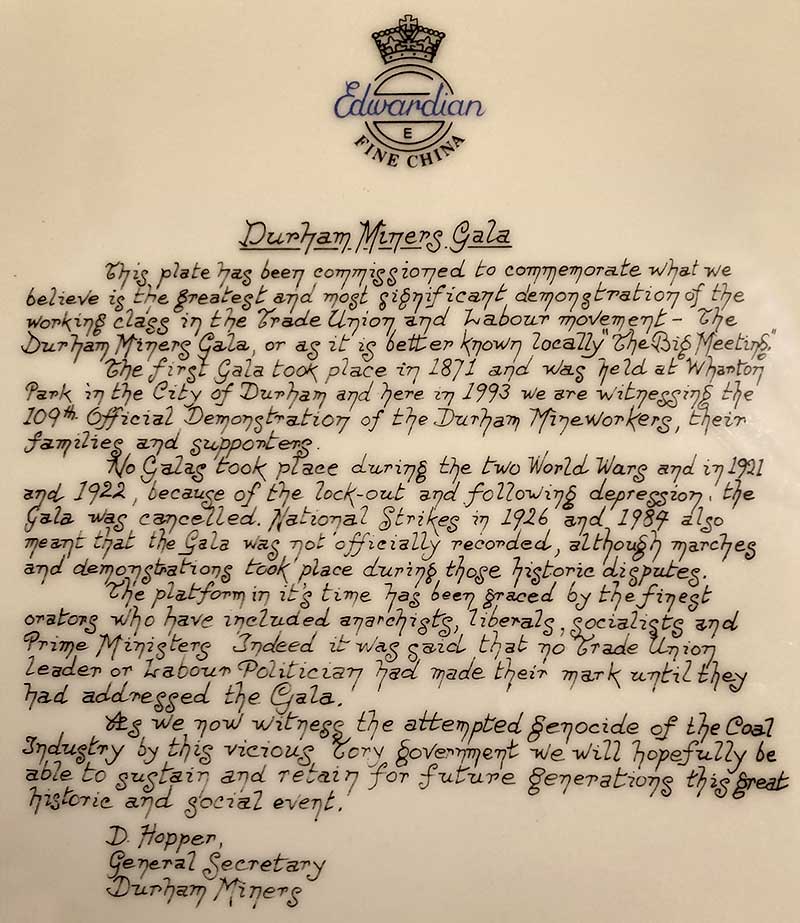 Edwardian
E
FINE CHINA
Durham Miners Gala
This plate has been commissioned to commemorate what we
believe is the greatest and most significant demonstration of the
working class in the Trade Union and Labour movement - The
Durham Miners Gala, or as it is better known locally "The Big Meeting."
The first Gala took place in 1871 and was held at Wharton
Park in the City of Durham and here in 1993 we are witnessing the
109th. Official Demonstration of the Durham Mineworkers, their
families and supporters.
No Galas took place during the two World Wars and in 1921
and 1922, because of the lock-out and following depression, the
Gala was cancelled. National Strikes in 1926 and 1984 also
meant that the Gala was not officially recorded, although marches
and demonstrations took place during those historic disputes.
The platform in it's time has been graced by the finest
orators who have included anarchists, liberals, socialists and
Prime Ministers Indeed it was said that no Trade Union
leader or Labour Politician had made their mark until they
had addressed the Gala.
As we now witness the attempted genocide of the Coal
Industry by this vicious Tory government we will hopefully be
able to sustain and retain for future generations this great
historic and social event.
D. Hopper,
General Secretary
Durham Miners